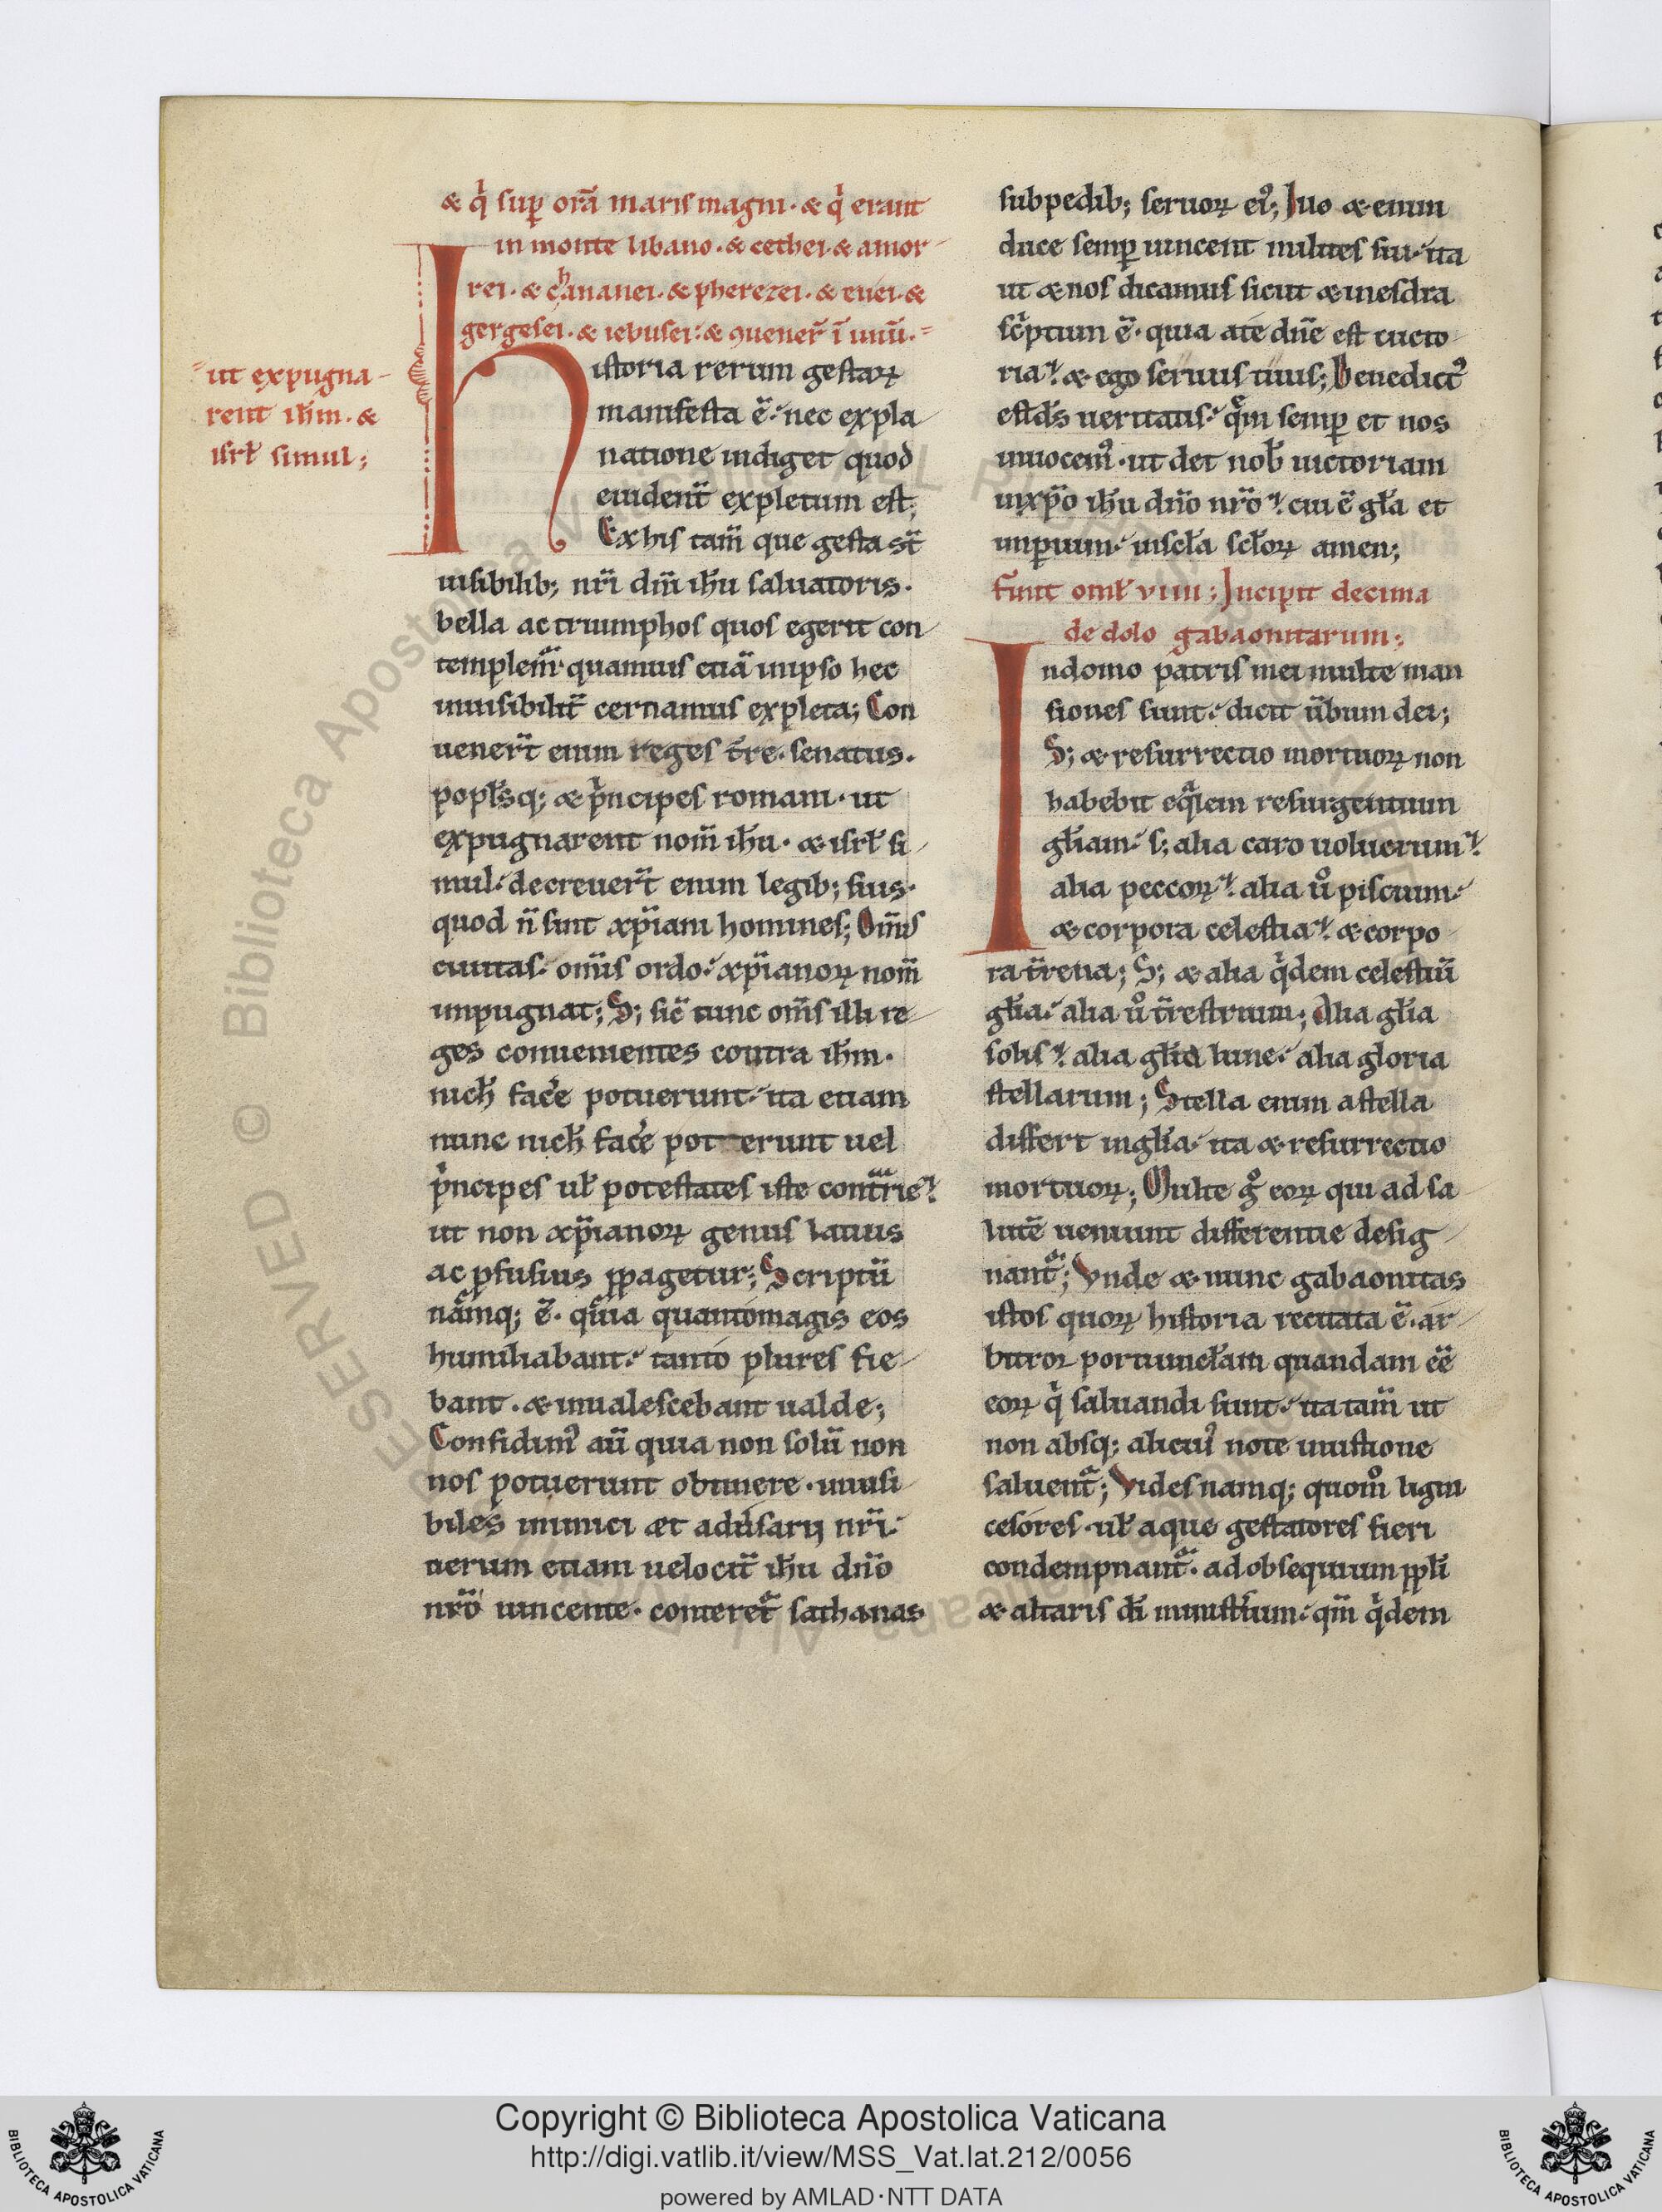 & q̇ suꝑ orā maris magni · & q̇ erant
in monte libano · & cethei · & amor
rei · & chananei · & pherezei · & euei · &
gergesei · & iebusei : & ꝯuener̄ ī unū ·
ut expugna-
rent ih̄m · &
isrł simul ;
Historia rerum gestaꝝ
manifesta ē · nec expla
natione indiget quod
euident̄ expletum est ;
Ex his tam̄ que gesta st̄
uisibilib; nr̄i dn̄i ih̄u saluatoris ·
bella ac triumphos quos egerit con
templem̄ quamuis etiā in ipso hec
inuisibilit̄ cernamus expleta ; Con
uener̄t enim reges t̄re · senatus ·
popłsq; & pͥncipes romani · ut
expugnarent nom̄ ih̄u · & isrł si
mul · decreuer̄t enim legib; suis ·
quod n̄ sint xp̄iani homines ; Om̄is
ciuitas · om̄is ordo · xp̄ianoꝝ nom̄
impugnat ; S; sic̄ tunc om̄s illi re
ges conuenientes contra ih̄m ·
nich̄ fac̄e potuerunt · ita etiam
nunc nich̄ fac̄e poterunt uel
pͥncipes uł potestates iste contrͣrie
ut non xp̄ianoꝝ genus latius
ac ꝓfusius ꝓpagetur ; Scriptū
nāmq; ē · qm̄ia quantomagis eos
humiliabant · tanto plures fie
bant · & inualescebant ualde ;
Confidimꝰ aū quia non solū non
nos potuerunt obtinere · inuisi
biles inimici æt adūsarij nr̄i ·
uerum etiam uelocit̄ ih̄u dn̄o
nr̄o uincente · conteretͬ sathanas
sub pedib; seruoꝝ eiꝰ ; Iuo & enim
duce semꝑ uincent milites sui · ita
ut & nos dicamus sicut & inesdra
sc̓ptum ē · quia ate dn̄e est uicto
ria · & ego seruus tuus ; Benedictꝰ
est ds̄ ueritatis · qͣm semꝑ et nos
inuocemꝰ · ut det nob̄ uictoriam
inxp̄o ih̄u dn̄o nr̄o · cui ē gł̄a et
imperium · inscł̄a scł̄oꝝ amen ;
finit omł viiii ; Incipit decima
de dolo gabaonitarum ;
In domo patris mei multe man
siones sunt · dicit ūbum dei ;
S; & resurrectio mortuoꝝ non
habebit eqͣlem resurgentium
gł̄iam · s; alia caro uolucrum
alia peccoꝝ · alia ūo piscium ·
& corpora celestia · & corpo
ra t̄rena ; S; & alia q̇dem celestiū
gł̄ia · alia ūo t̄restrium ; Alia gł̄ia
solis · alia gł̄ia lune · alia gloria
stellarum ; Stella enim a stella
differt ingł̄ia · ita & resurrectio
mortuoꝝ ; Multe gͦ eoꝝ qui ad sa
lutē ueniunt differentie desig
nantͬ ; Vnde & nunc gabaonitas
istos quoꝝ historia recitata ē · ar
bitror portiuncł̄am quandam eē
eoꝝ q̇ saluandi sunt · ita tam̄ ut
non absq; alicuiꝰ note inustione
saluentͬ ; Vides namq; quom̊ ligni
cesores · uł aque gestatores fieri
condempnantͬ · ad obsequium ꝓpłi
& altaris dī ministrium · qm̄ q̇dem
Copyright © Biblioteca Apostolica Vaticana
http://digi.vatlib.it/view/MSS_Vat.lat.212/0056
powered by AMLAD·NTT DATA
BIBLIOTECA APOSTOLICA VATICANA
BIBLIOTECA APOSTOLICA VATICANA